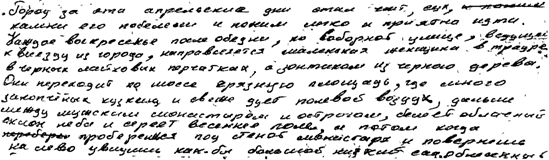 Город за эти апрельские дни стал чист, сух,
камни его побелели и по ним легко и приятно идти.
Каждое воскресенье после обедни, по соборной улице, ведущей
к выезду из города, направляется маленькая женщина в трауре,
в черных лайковых перчатках, с зонтиком из черного дерева.
Она переходит по шоссе грязную площадь, где много
закопчёных кузниц и свежо дует полевой воздух, дальше
между мужским монастырём и острогом, белеет облачный
склон неба и сереет весеннее поле, а потом когда
проберешся под стеной монастыря и повернешь
на лево увидишь как-бы большой низкий сад, обнесенный